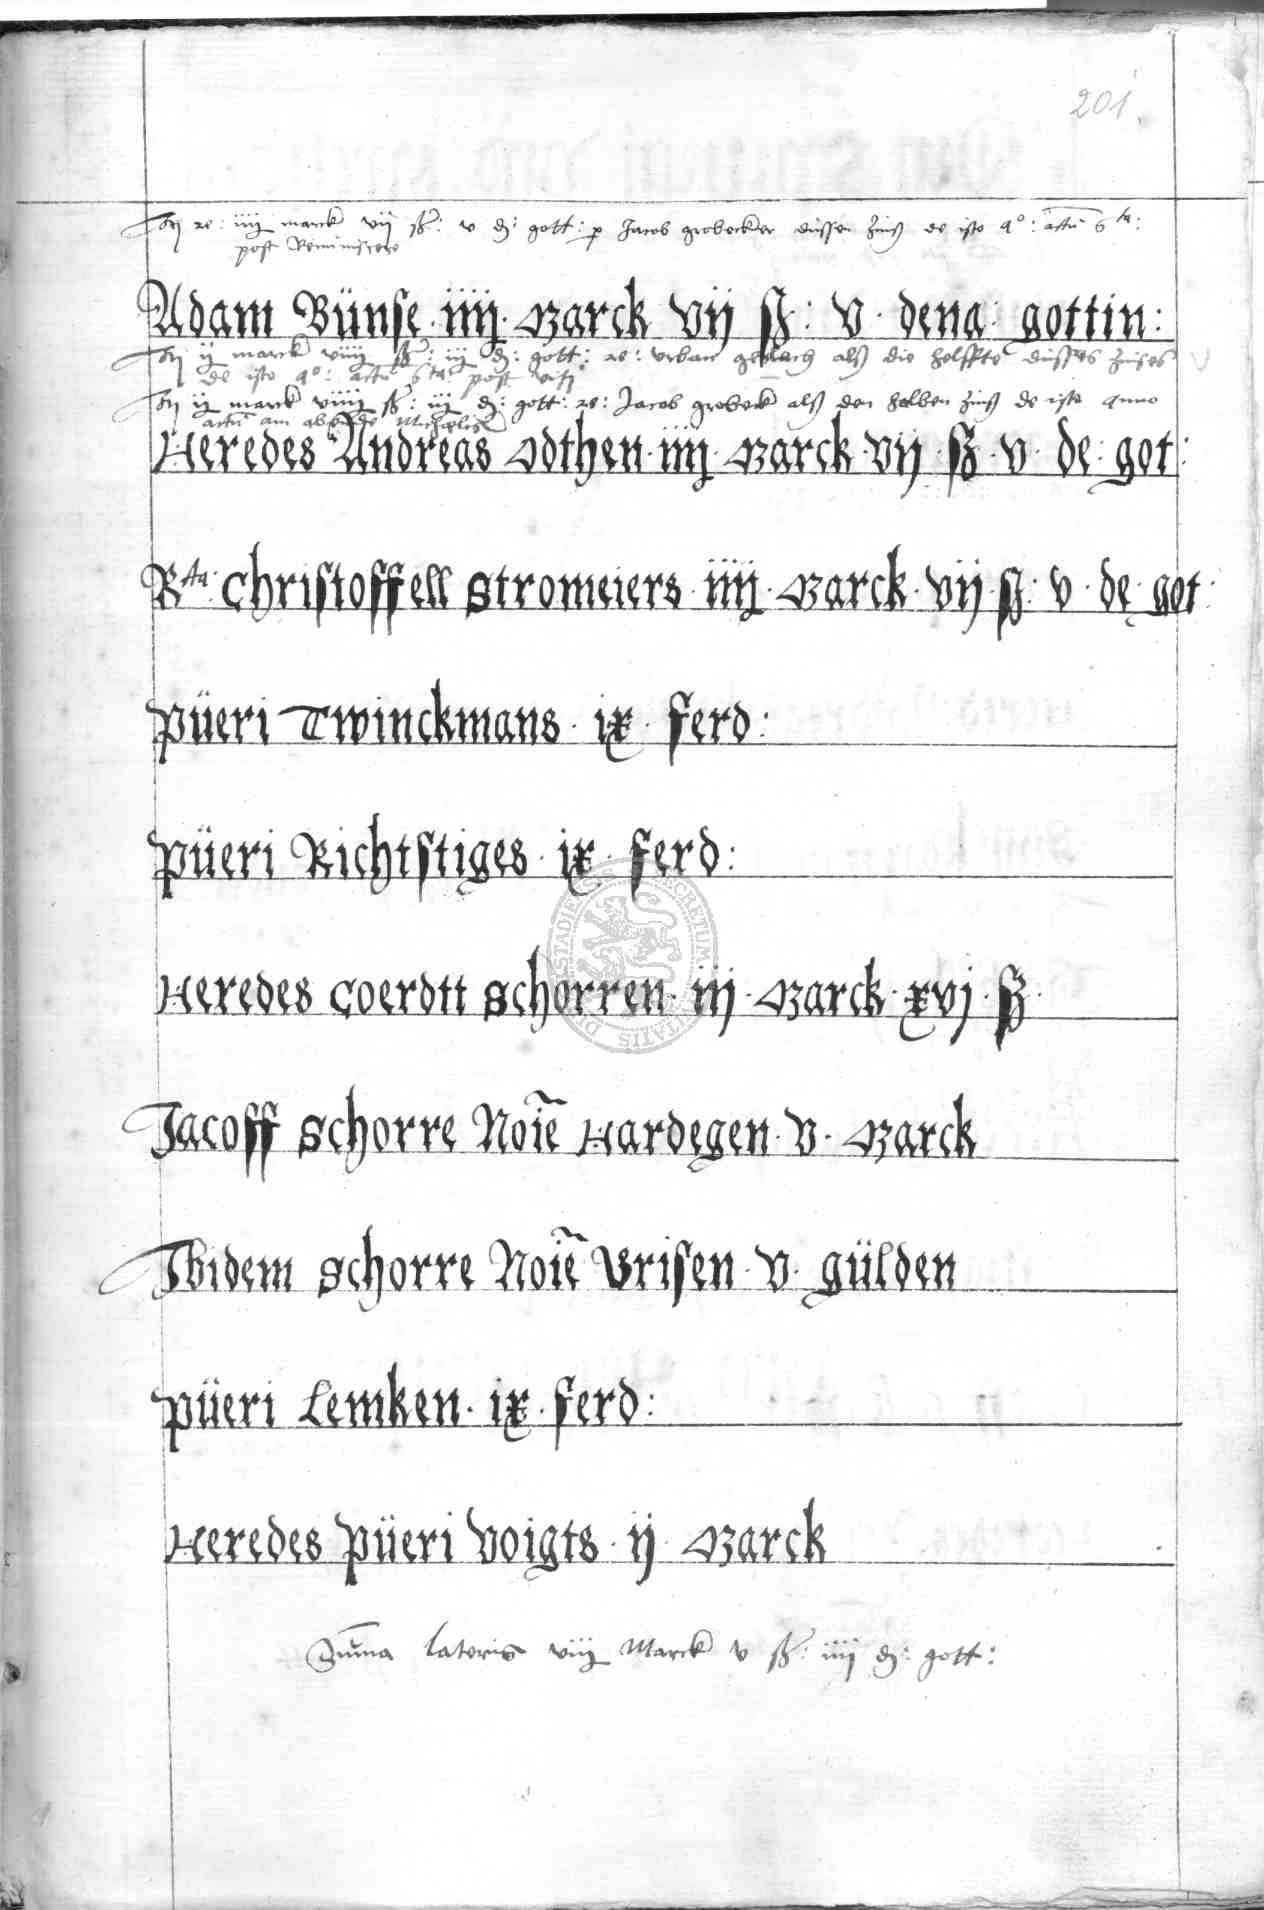 201
re: iiij marck vij ß: v ₰: gott: p Jacob grobecker dussen zinß de isto a°: actu 6ta:
post Reminiscere
Adam Bünse · iiij · Marck vij ß: v · dena: gottin:
ij marck viiij ß: iij ₰: gott: re: urban gerlach alß die helffte dusses zinses
de isto a°: actu 6ta: post viti
ij marck viiij ß: iij ₰: gott: re: Jacob grobeck alß den halben zinß de isto anno
actu am abende Michaelis
Heredes Andreas Odthen · iiij · Marck · vij · ß · v · de: got:
Rta· Christoffell Stromeiers · iiij · Marck · vij · ß: v · de · got:
Püeri Twinckmans · ix · ferd:
Püeri Richtstiges · ix · ferd:
Heredes Coerdtt Schorren · iij · Marck · xvj · ß ·
Jacoff Schorre Noiẽ Hardegen · v · Marck
Ibidem Schorre Noiẽ Vrisen · v · gülden
Püeri Lemken · ix · ferd:
Heredes Püeri Voigts · ij · Marck
Suma lateris viiij Marck v ß: iiij ₰: gott:
SECRETUM